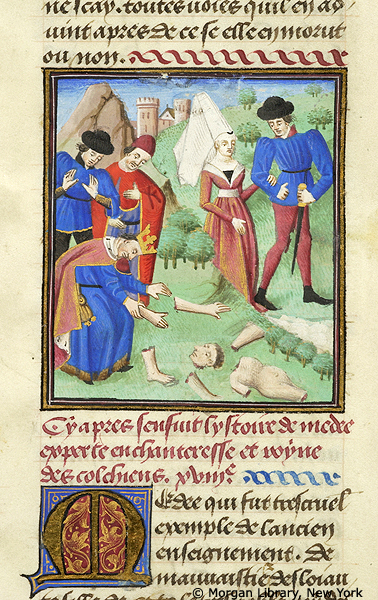 ne scay. toutes voies quil en ad
uint apres de ce se elle en morut
ou non.
Cy apres sensuit lystoire de medee
experte enchanteresse et royne
des colchiens. xviije.
Medee qui fut trescruel
exemple de lancien
enseignement. De
mauuaistie desloiau
© Morgan Library, New York